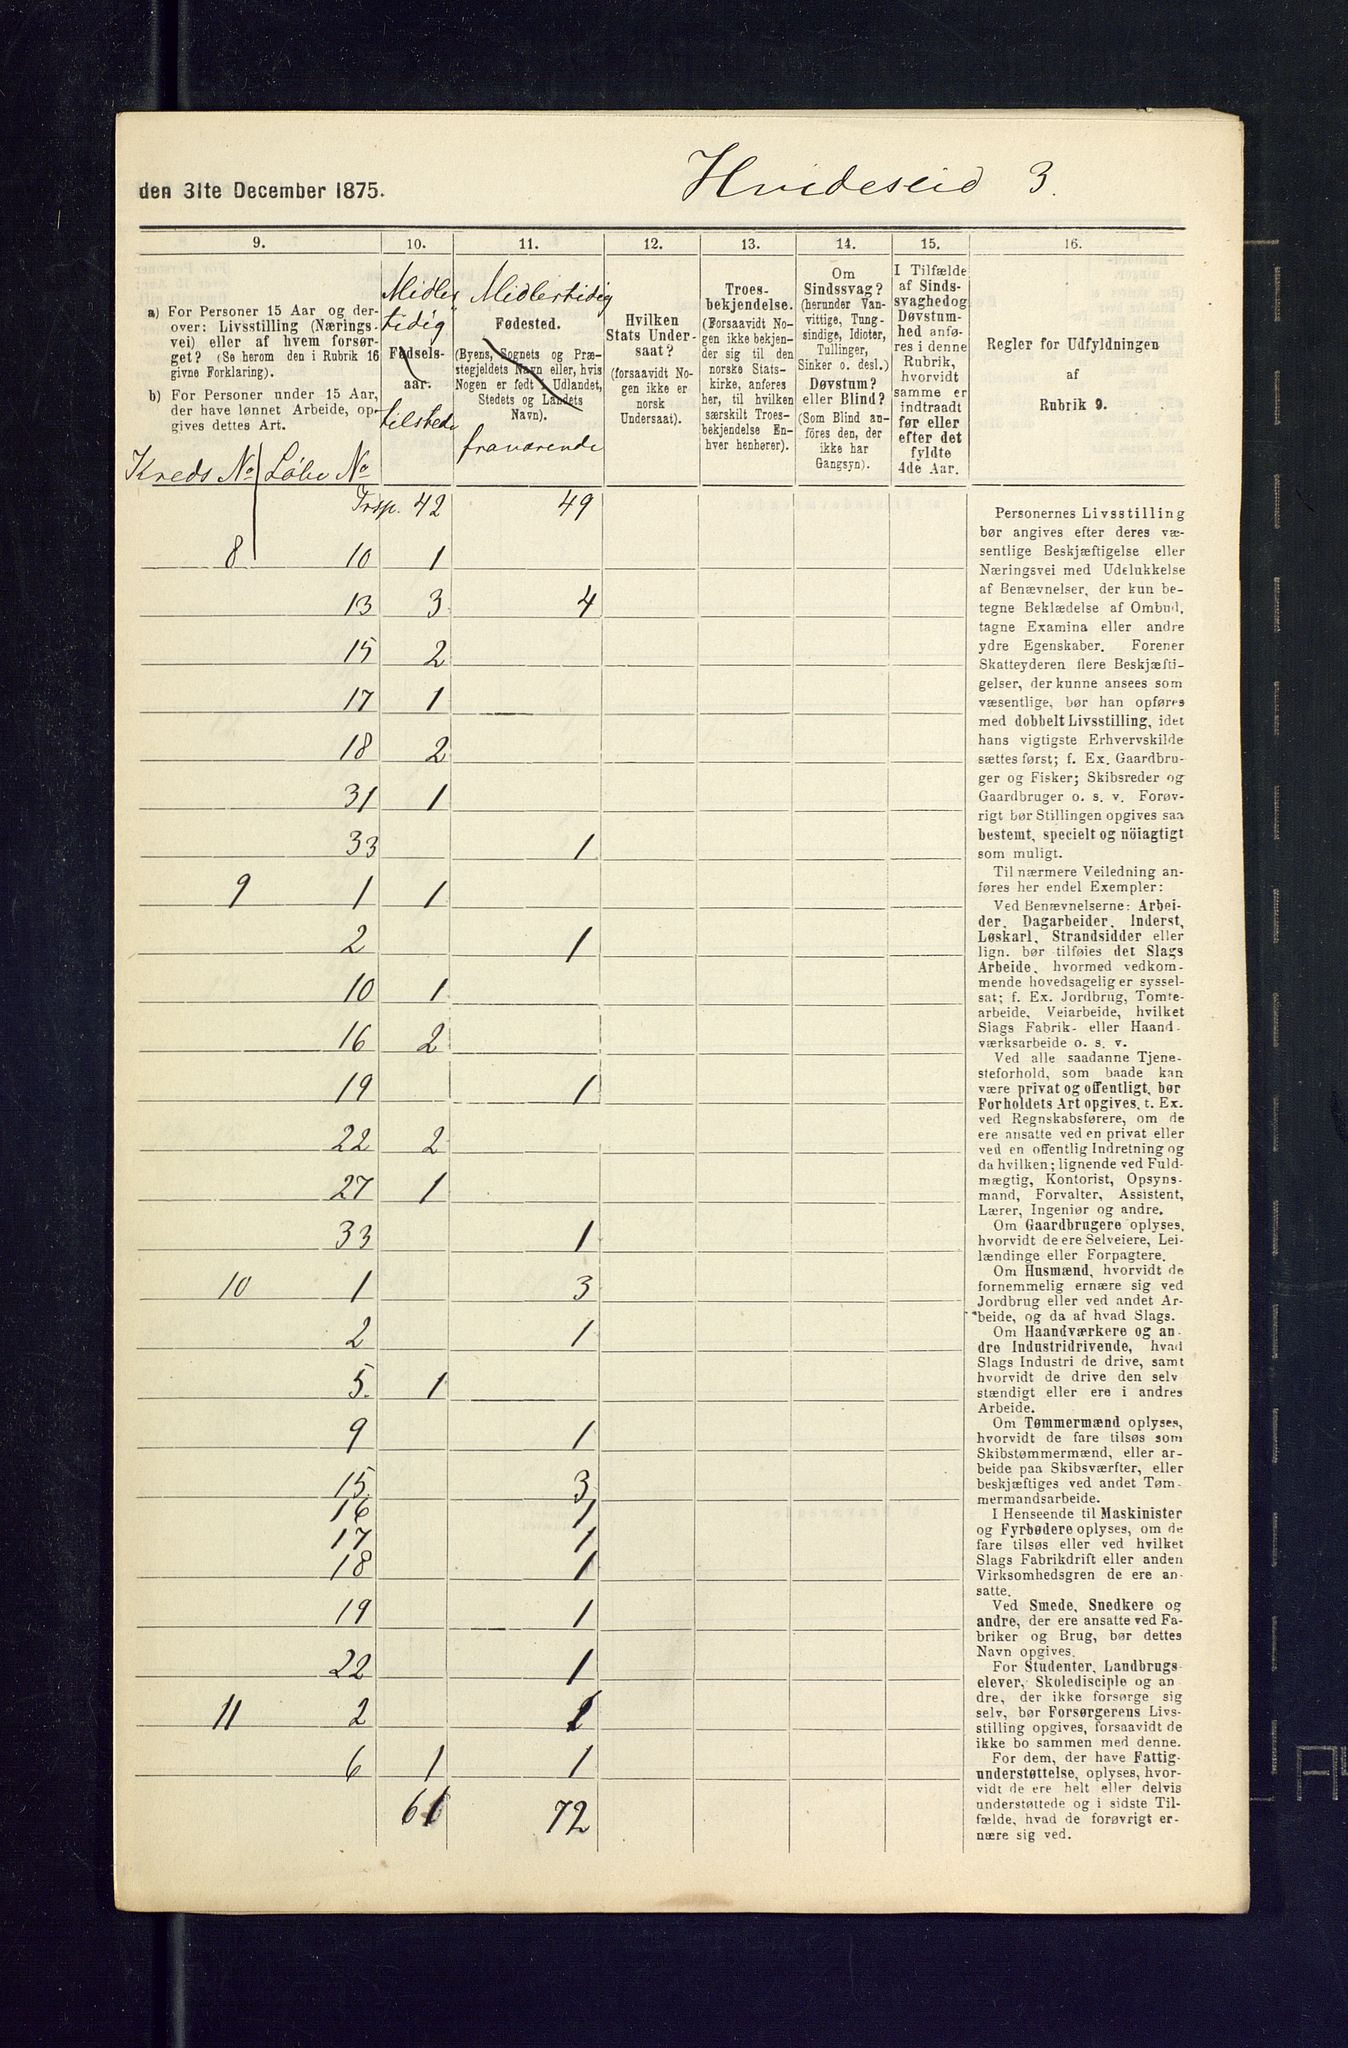 den 31te December 1875. Hvideseid 3.
9. 10. 11. 12. 13. 14. 15. 16.
a) For Personer 15 Aar og der-
over: Livsstilling (Nærings-
vei) eller af hvem forsør-
get? (Se herom den i Rubrik 16
givne Forklaring).
b) For Personer under 15 Aar,
der have lønnet Arbeide, op-
gives dettes Art.
Kreds No Løbe No
Midler
tidig
Fødsels-
aar.
tilstede
Midlertidig
Fødested.
(Byens, Sognets og Præ-
stegjeldets Navn eller, hvis
Nogen er født i Udlandet,
Stedets og Landets
Navn).
fraværende
Hvilken
Stats Under-
saat?
(forsaavidt No-
gen ikke er
norsk
Undersaat).
Troes-
bekjendelse.
(Forsaavidt No-
gen ikke bekjen-
der sig til den
norske Stats-
kirke, anføres
her, til hvilken
særskilt Troes-
bekjendelse En-
hver henhører).
Om
Sindssvag?
(herunder Van-
vittige, Tung-
sindige, Idioter,
Tullinger,
Sinker o. desl.)
Døvstum?
eller Blind?
(Som Blind an-
føres den, der
ikke har
Gangsyn).
I Tilfælde
af Sinds-
svaghedog
Døvstum-
hed anfø-
res i denne
Rubrik,
hvorvidt
samme er
indtraadt
før eller
efter det
fyldte
4de Aar.
Regler for Udfyldningen
af
Rubrik 9.
Trsp. 42 49
8 10 1
13 3 4
15 2
17 1
18 2
31 1
33 1
9 1 1
2 1
10 1
16 2
19 1
22 2
27 1
33 1
10 1 3
2 1
5. 1
9 1
15 3
16 1
17 1
18 1
19 1
22 1
11 2
6 1 1
61 72
Personernes Livsstilling
bør angives efter deres væ-
sentlige Beskjæftigelse eller
Næringsvei med Udelukkelse
af Benævnelser, der kun be-
tegne Beklædelse af Ombud,
tagne Examina eller andre
ydre Egenskaber. Forener
Skatteyderen flere Beskjæfti-
gelser, der kunne ansees som
væsentlige, bør han opføres
med dobbelt Livsstilling, idet
hans vigtigste Erhvervskilde
sættes først; f. Ex. Gaardbru-
ger og Fisker; Skibsreder og
Gaardbruger o. s. v. Forøv-
rigt bør Stillingen opgives saa
bestemt, specielt og nöiagtigt
som muligt.
Til nærmere Veiledning an-
føres her endel Exempler:
Ved Benævnelserne: Arbei-
der, Dagarbeider, Inderst,
Løskarl, Strandsidder eller
lign. bør tilføies det Slags
Arbeide, hvormed vedkom-
mende hovedsagelig er syssel-
sat; f. Ex. Jordbrug, Tomte-
arbeide, Veiarbeide, hvilket
Slags Fabrik- eller Haand-
værksarbeide o. s. v.
Ved alle saadanne Tjene-
steforhold, som baade kan
være privat og offentligt, bør
Forholdets Art opgives, t. Ex.
ved Regnskabsførere, om de
ere ansatte ved en privat eller
ved en offentlig Indretning og
da hvilken; lignende ved Fuld-
mægtig, Kontorist, Opsyns-
mand, Forvalter, Assistent,
Lærer, Ingeniør og andre.
Om Gaardbrugere oplyses,
hvorvidt de ere Selveiere, Lei-
lændinge eller Forpagtere.
Om Husmænd, hvorvidt de
fornemmelig ernære sig ved
Jordbrug eller ved andet Ar-
beide, og da af hvad Slags.
Om Haandværkere og an-
dre Industridrivende, hvad
Slags Industri de drive, samt
hvorvidt de drive den selv
stændigt eller ere i andres
Arbeide.
Om Tømmermænd oplyses,
hvorvidt de fare tilsøs som
Skibstømmermænd, eller ar-
beide paa Skibsværfter, eller
beskjæftiges ved andet Tøm-
mermandsarbeide.
I Henseende til Maskinister
og Fyrbødere oplyses, om de
fare tilsøs eller ved hvilket
Slags Fabrikdrift eller anden
Virksomhedsgren de ere an-
satte.
Ved Smede, Snedkere og
andre, der ere ansatte ved Fa-
briker og Brug, bør dettes
Navn opgives.
For Studenter, Landbrugs-
elever, Skoledisciple og an-
dre, der ikke forsørge sig
selv, bør Forsørgerens Livs-
stilling opgives, forsaavidt de
ikke bo sammen med denne.
For dem, der have Fattig-
understøttelse, oplyses, hvor-
vidt de ere helt eller delvis
understøttede og i sidste Til-
fælde, hvad de forøvrigt er-
nære sig ved.